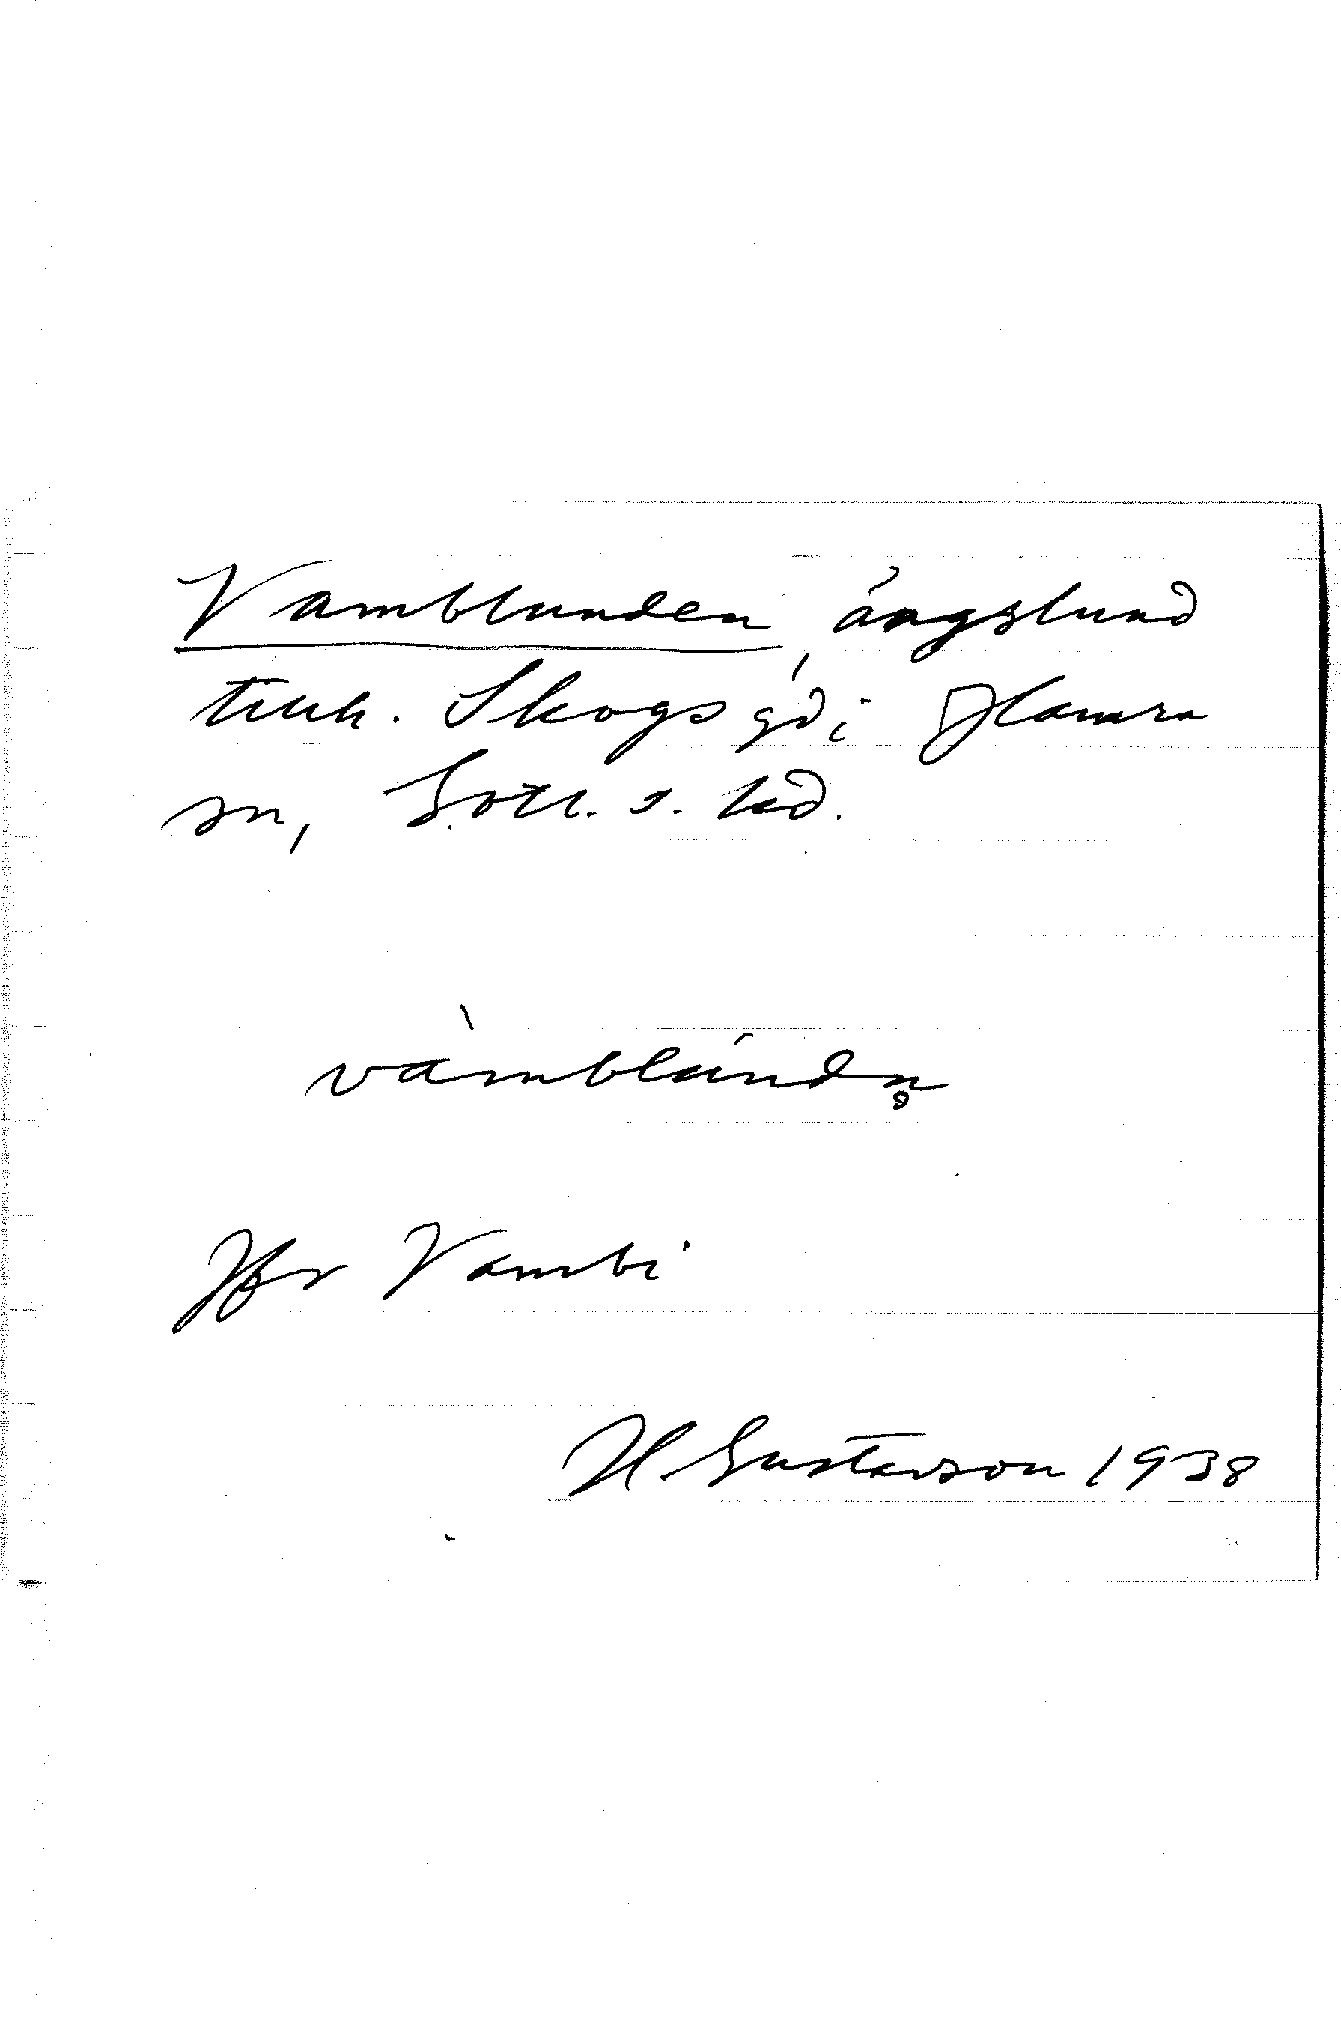 Vamblunden, ängslund
tillh. Skogs gd i Hamra
sn, Gotl. s. hd.
vàmblúndn̥
Jfr Vambi
H. Gustavson 1938